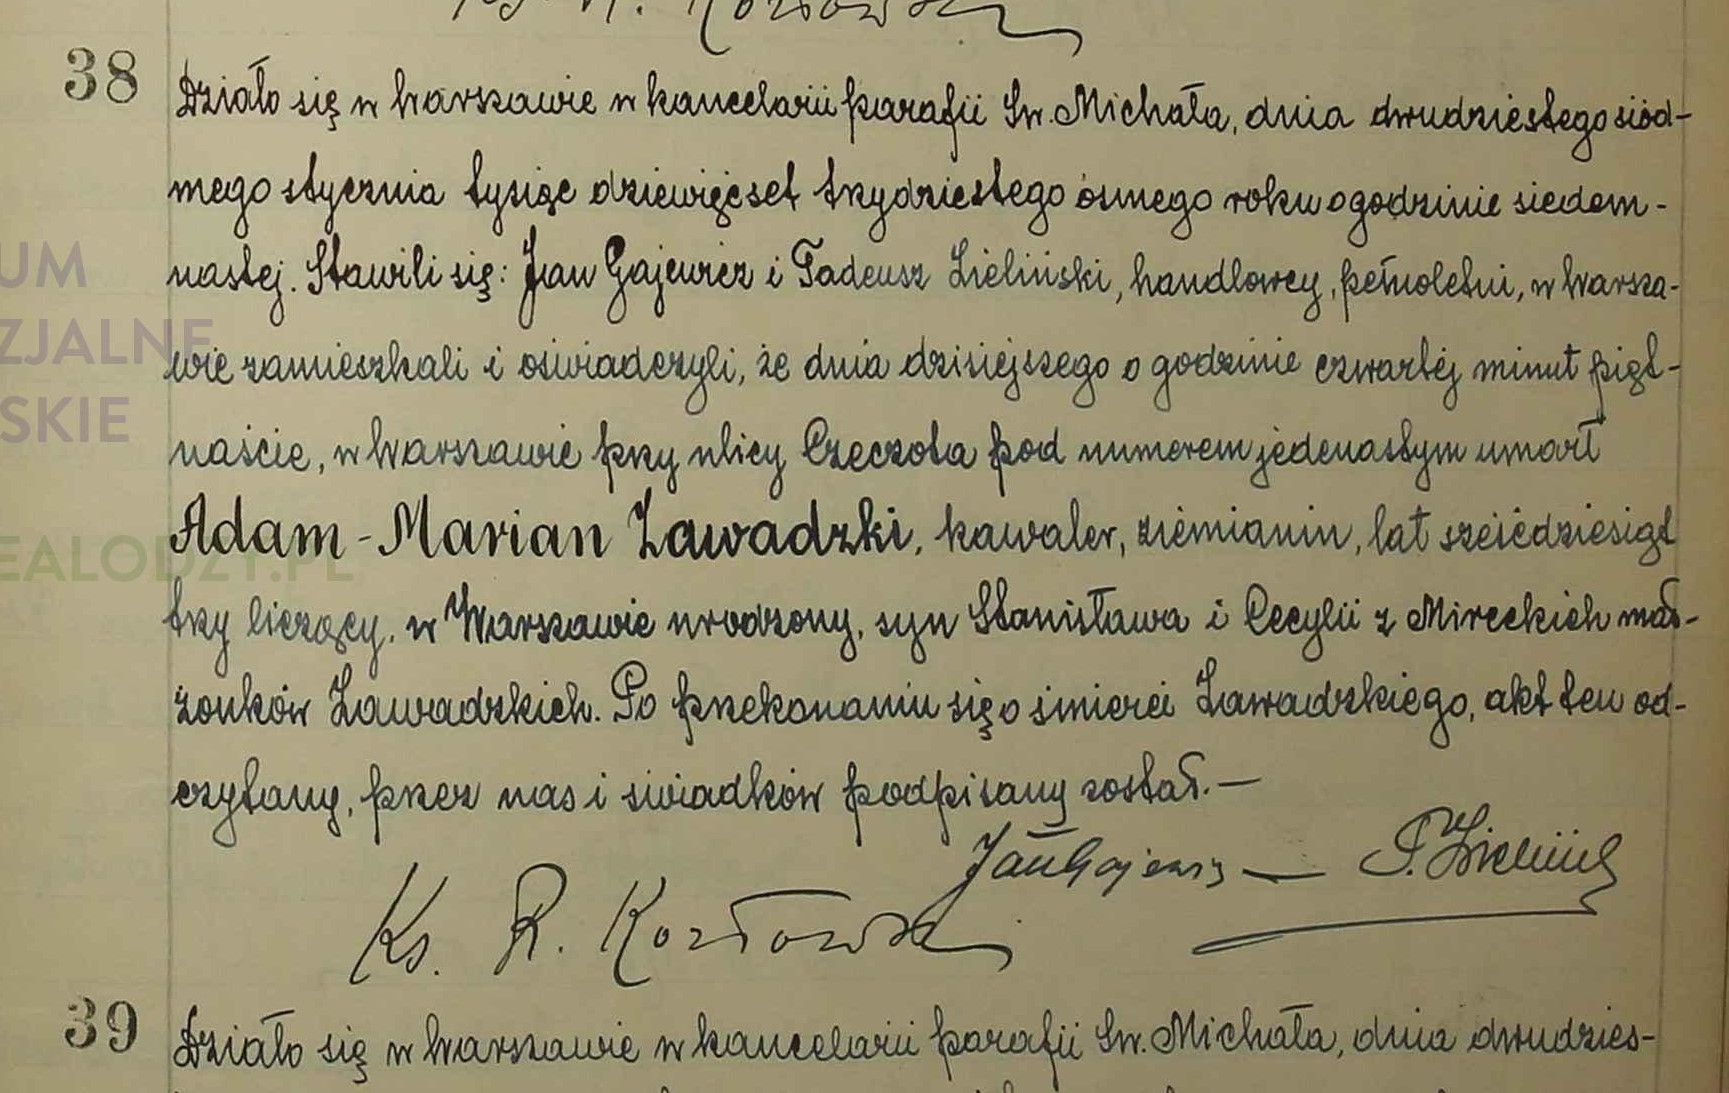 Ks. R. Kozłowski
38
Działo się w Warszawie w kancelarii parafii Św. Michała, dnia dwudziestego siód-
mego stycznia tysiąc dziewięćset trzydziestego ósmego roku o godzinie siedem-
nastej. Stawili się: Jan Gajewicz i Tadeusz Zieliński, handlowcy, pełnoletni, w Warsza-
wie zamieszkali i oświadczyli, że dnia dzisiejszego o godzinie czwartej minut pięt-
naście, w Warszawie przy ulicy Czeczota pod numerem jedenastym umarł
Adam-Marian Zawadzki, kawaler, ziemianin, lat sześćdziesiąt
trzy liczący, w Warszawie urodzony, syn Stanisława i Cecylii z Mireckich mał-
żonków Zawadzkich. Po przekonaniu się o śmierci Zawadzkiego, akt ten od-
czytany, przez nas i świadków podpisany został.—
Jan Gajewicz — T. Zieliński
Ks. R. Kozłowski
39
Działo się w Warszawie w kancelarii parafii Św. Michała, dnia dwudzies-
UM
ZJALNE
SKIE
EALODZY.PL